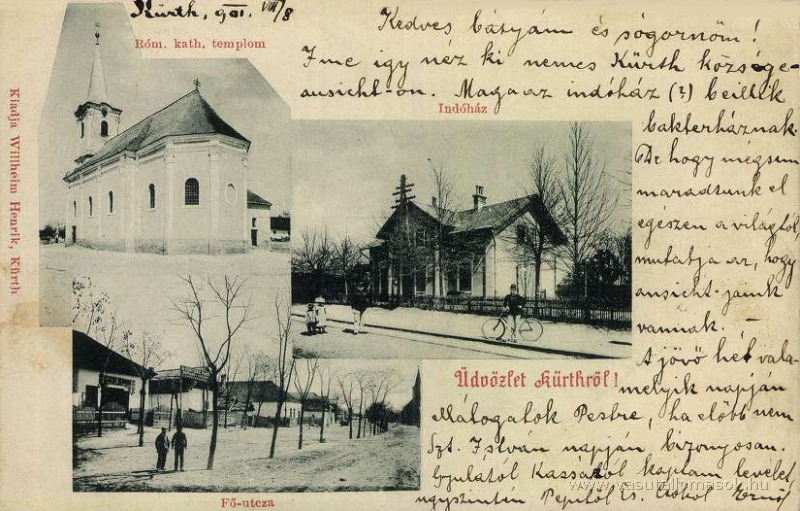 Kürth, 901. VIII/8
Róm. kath. templom
Kedves bátyám és sógornőm!
Ime igy néz ki nemes Kürth községe
ansicht-on. Maga az indóház (?) beillik
Indóház
bakterháznak.
De hogy mégsem
maradtunk el
egészen a világtól,
mutatja az, hogy
ansicht-jaink
vannak.
A jövő hét vala-
melyik napján
Üdvözlet Kürthről!
Málogatok Pestre, ha előbb nem
Szt. István napján bizonyosan.
Gyulától Kassáról kaptam levelet,
ugyszintén Pepitől is. Csókol Ernő
Fő-utcza
Kiadja Willheim Henrik, Kürth
www.vasutallomasok.hu